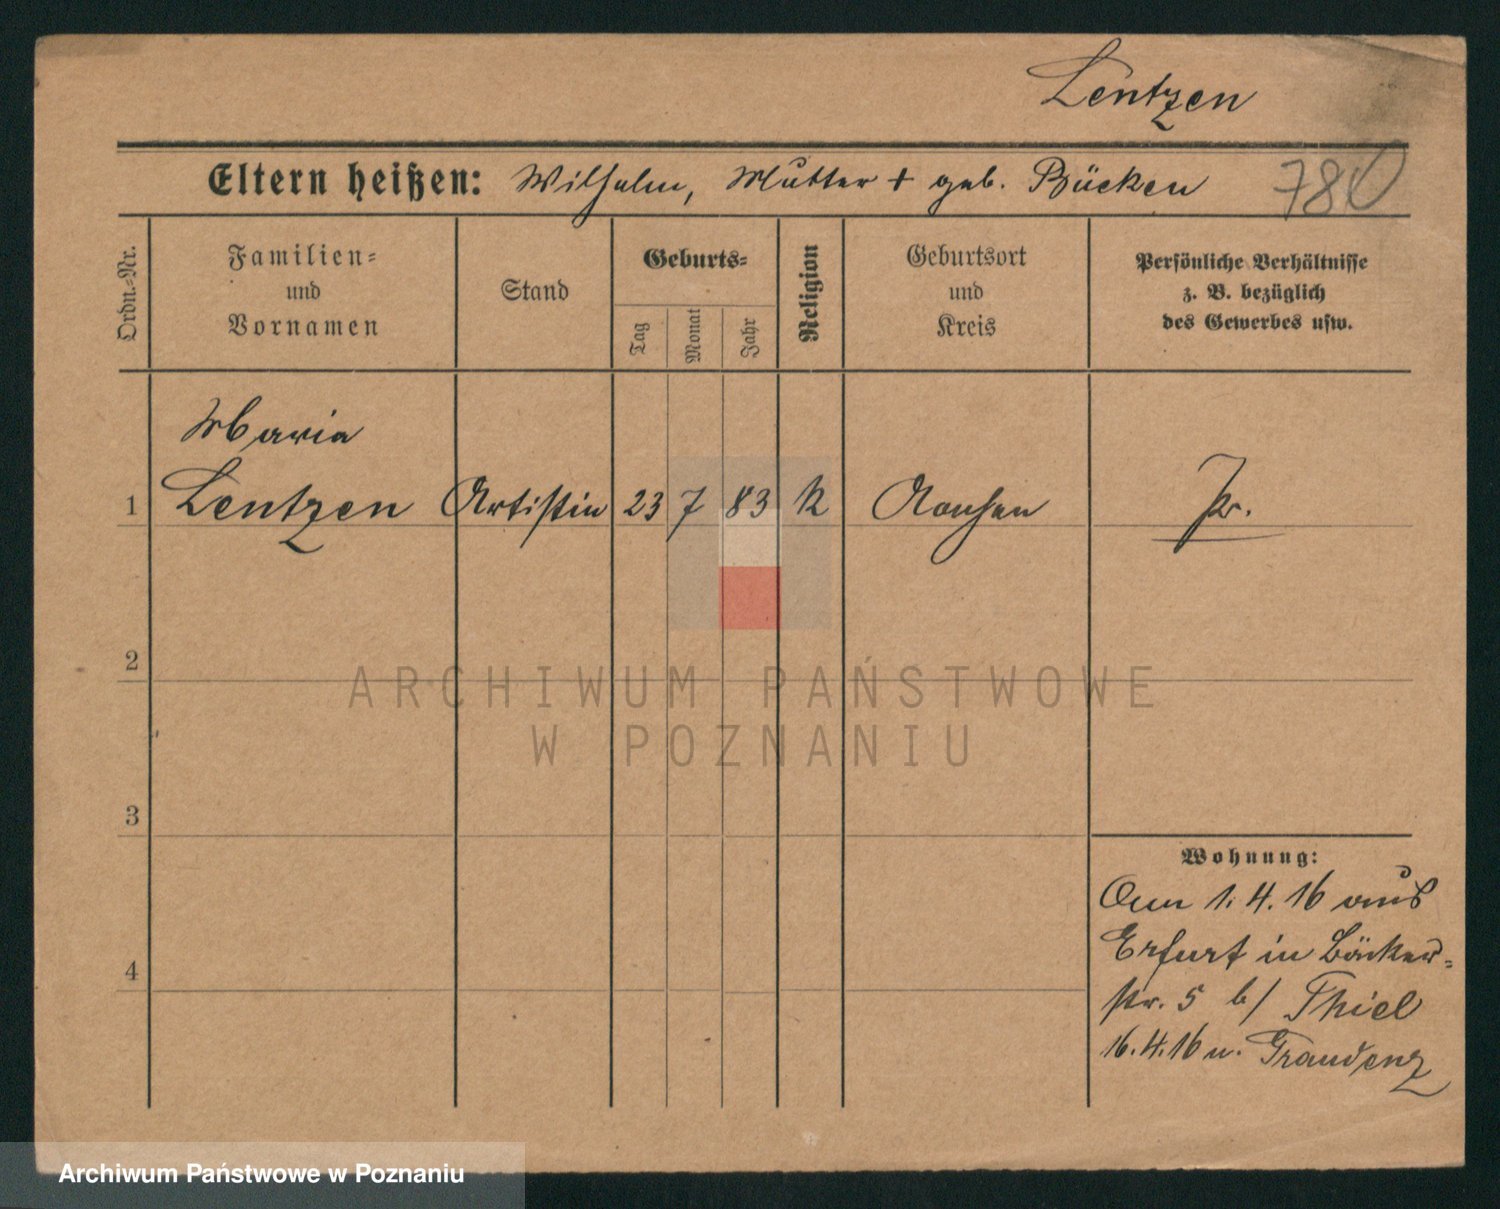 Lentzen
Eltern heißen: Wilhelm, Mutter + geb. Bücken
780
Ordn.-Nr.
Familien-
und
Vornamen
Stand
Geburts-
Tag
Monat
Jahr
Religion
Geburtsort
und
Kreis
Persönliche Verhältnisse
z. B. bezüglich
des Gewerbes usw.
Maria
1 Lentzen Artistin 23 7 83 K Aachen Pr.
2
ARCHIWUM PAŃSTWOWE
W POZNANIU
3
4
Wohnung:
Am 1.4.16 aus
Erfurt in Bäcker-
str. 5 b/ Thiel
16.4.16 n. Graudenz
Archiwum Państwowe w Poznaniu